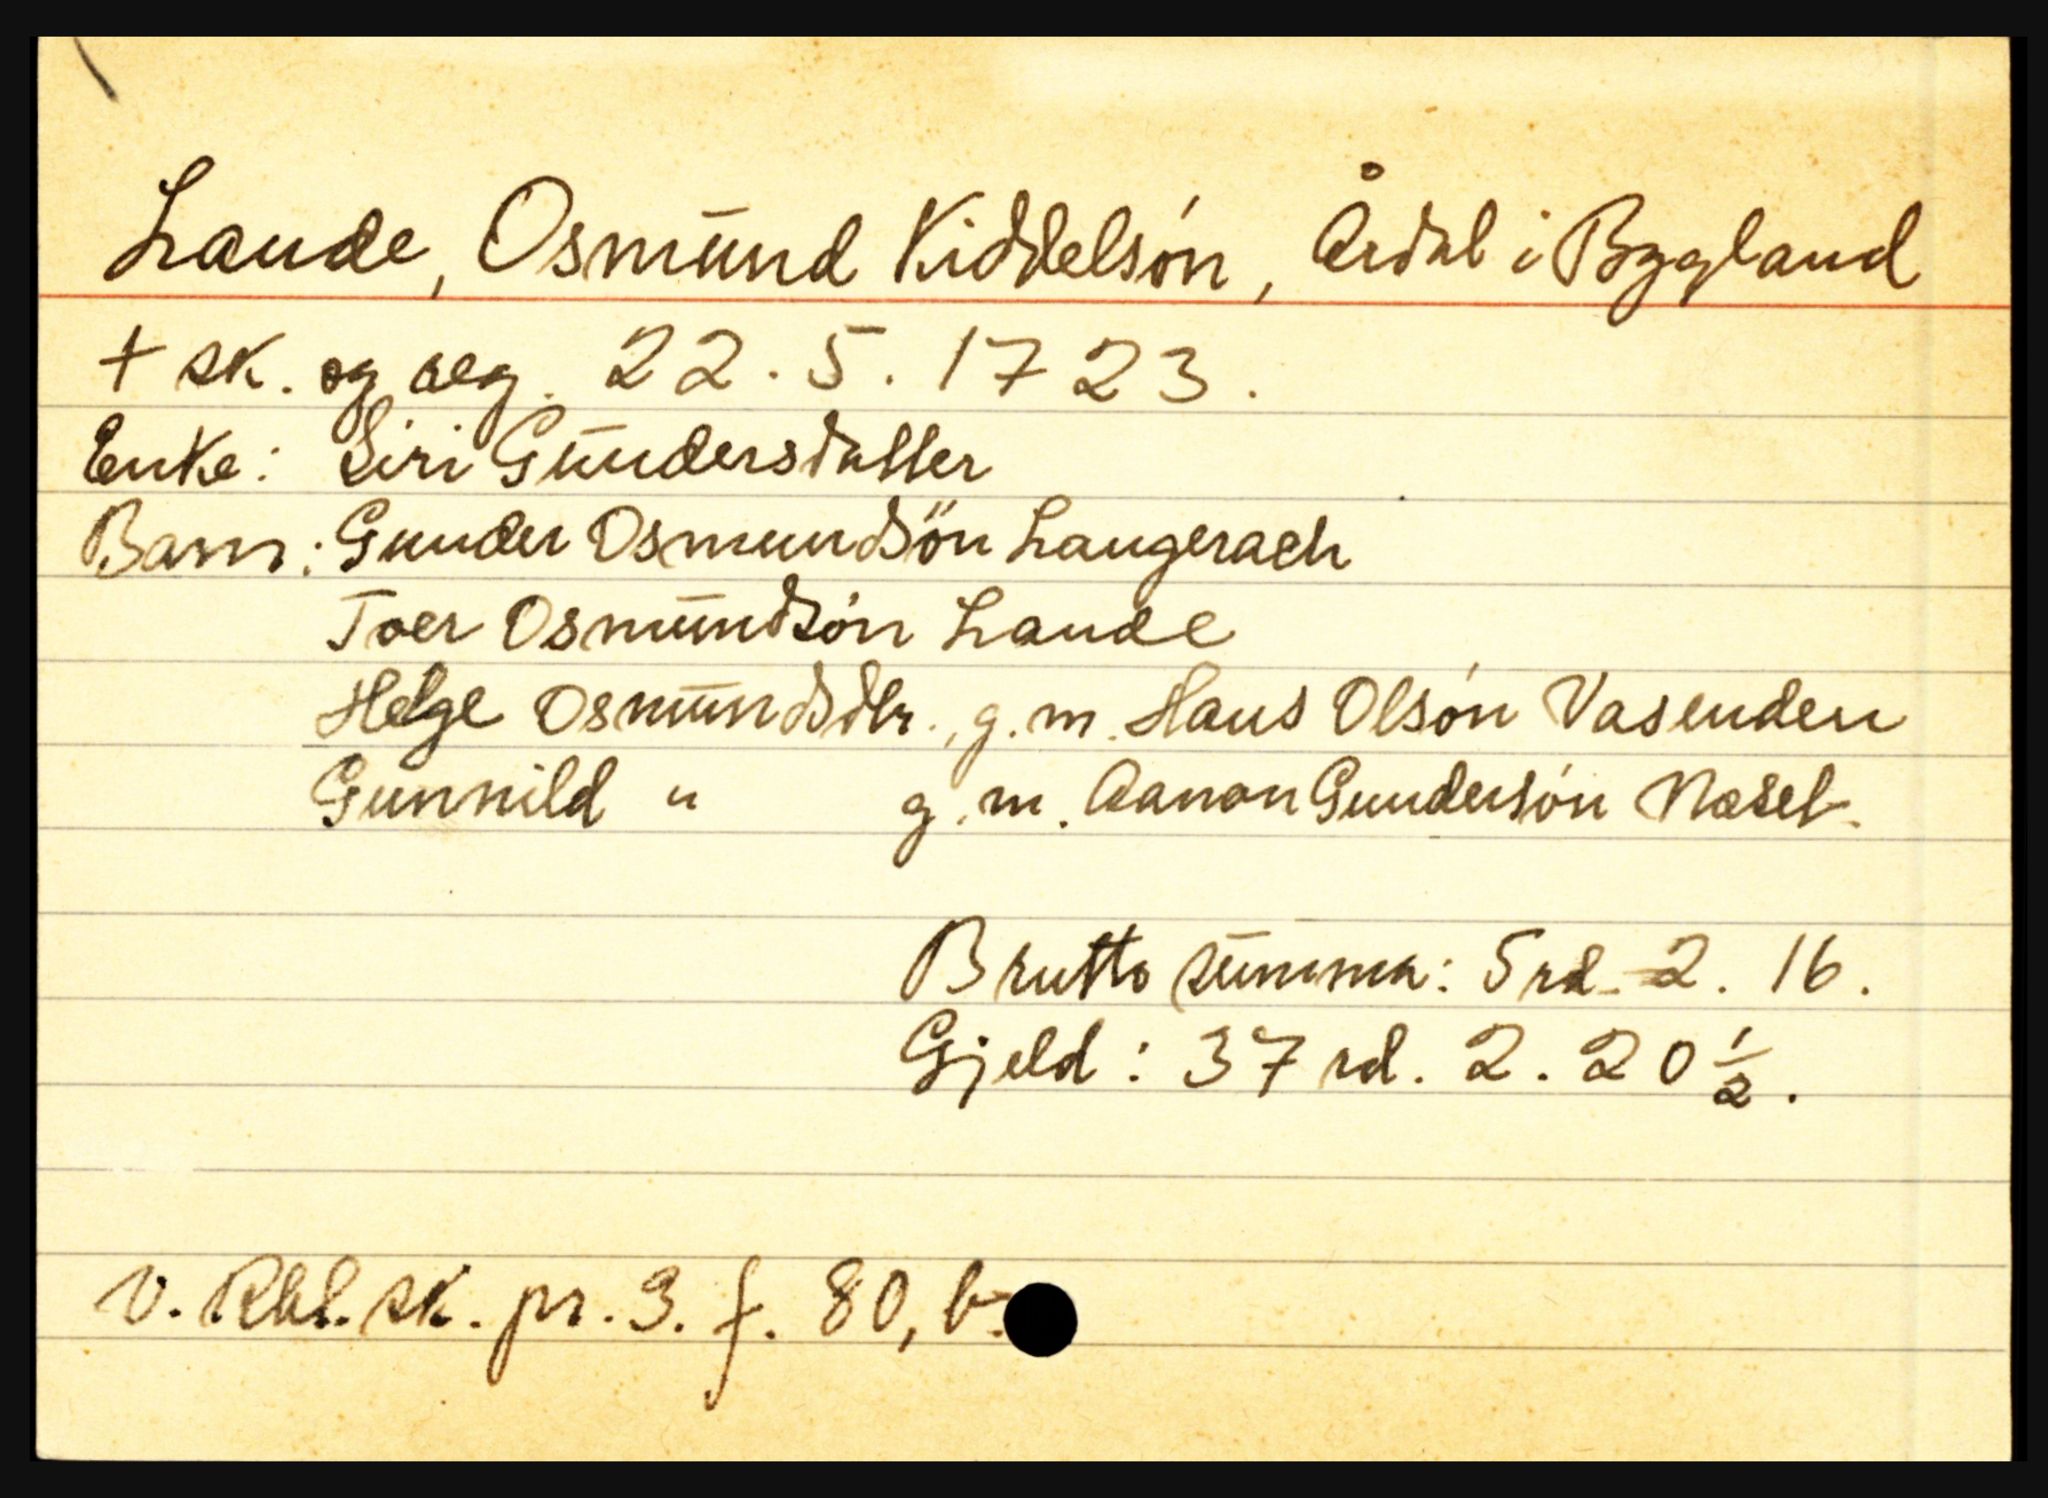 Lande, Osmund Kiddelsón, Årdal i Bygland
+ sk. og aug. 22.5.1723.
Enke: Siri Gundersdatter
Barn: Gunder Osmundsön Langerach
Toer Osmundsón Lande
Helge Osmundsdtr., g.m. Hans Olsón Vasenden
Gunnild " g.m. Aanon Gundersón Næset.
Brutto summa: 5 rd. 2. 16.
Gjeld: 37 rd. 2. 20 ½.
V. Rbl. sk. pr. 3. f. 80, b.